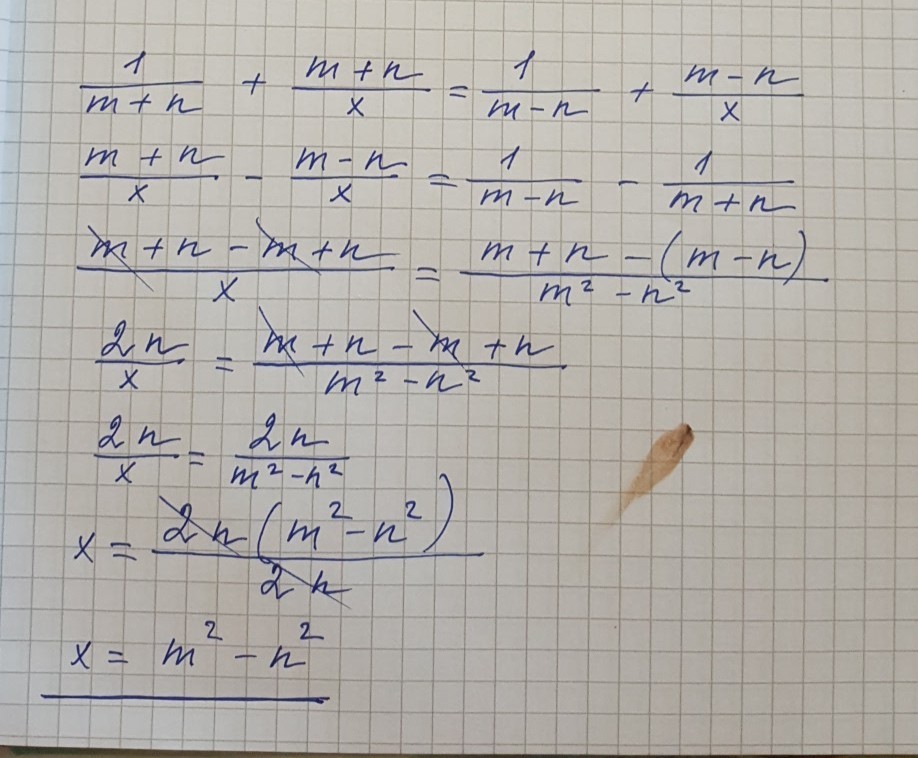 1/(m+n) + (m+n)/x = 1/(m-n) + (m-n)/x
(m+n)/x - (m-n)/x = 1/(m-n) - 1/(m+n)
(m+n-m+n)/x = (m+n-(m-n))/(m²-n²)
2n/x = (m+n-m+n)/(m²-n²)
2n/x = 2n/(m²-n²)
x = 2n(m²-n²)/2n
x = m²-n²